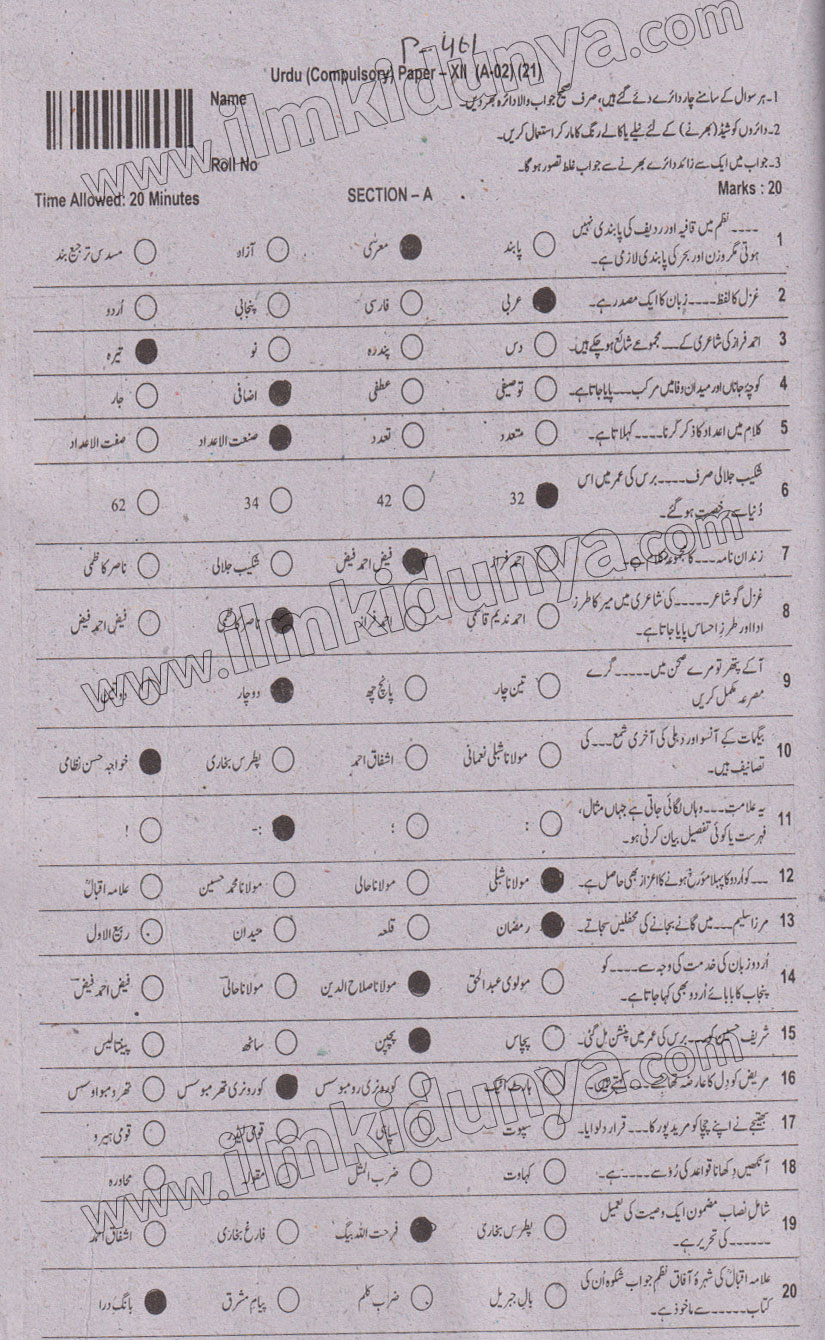 P-461
Urdu (Compulsory) Paper – XII (A-02) (21)
Name
1- ہر سوال کے سامنے چار دائرے دئے گئے ہیں، صرف صحیح جواب والا دائرہ بھر دیں۔
2- دائروں کو شیڈ (بھرنے) کے لئے نیلے یا کالے رنگ کا مارکر استعمال کریں۔
Roll No
3- جواب میں ایک سے زائد دائرے بھرنے سے جواب غلط تصور ہو گا۔
Time Allowed: 20 Minutes SECTION – A Marks : 20
1 ---- نظم میں قافیہ اور ردیف کی پابندی نہیں
ہوتی مگر وزن اور بحر کی پابندی لازمی ہے۔
پابند معرّیٰ آزاد مسدس ترجیع بند
2 غزل کا لفظ ---- زبان کا ایک مصدر ہے۔ عربی فارسی پنجابی اُردو
3 احمد فراز کی شاعری کے --- مجموعے شائع ہو چکے ہیں۔ دس پندرہ نو تیرہ
4 کوچۂ جاناں اور میدان وفا میں مرکب --- پایا جاتا ہے۔ توصیفی عطفی اضافی جار
5 کلام میں اعداد کا ذکر کرنا ---- کہلاتا ہے۔ متعدد تعدد صنعت الاعداد صفت الاعداد
6 شکیب جلالی صرف ---- برس کی عمر میں اس
دُنیا سے رخصت ہو گئے۔
32 42 34 62
7 زندان نامہ --- کا مجموعہ کلام ہے۔ احمد فراز فیض احمد فیض شکیب جلالی ناصر کاظمی
8 غزل گو شاعر ----- کی شاعری میں میر کا طرز
ادا اور طرزِ احساس پایا جاتا ہے۔
احمد ندیم قاسمی احمد فراز ناصر کاظمی فیض احمد فیض
9 آ کے پتھر تو مرے صحن میں ----- گرے
مصرعہ مکمل کریں
تین چار پانچ چھ دو چار دو تین
10 بیگمات کے آنسو اور دہلی کی آخری شمع --- کی
تصانیف ہیں۔
مولانا شبلی نعمانی اشفاق احمد پطرس بخاری خواجہ حسن نظامی
11 یہ علامت --- وہاں لگائی جاتی ہے جہاں مثال،
فہرست یا کوئی تفصیل بیان کرنی ہو۔
: ؛ :- !
12 --- کو اُردو کا پہلا مؤرخ ہونے کا اعزاز بھی حاصل ہے۔ مولانا شبلی مولانا حالی مولانا محمد حسین علامہ اقبالؒ
13 مرزا سلیم --- میں گانے بجانے کی محفلیں سجاتے۔ رمضان قلعہ میدان ربیع الاول
14 اُردو زبان کی خدمت کی وجہ سے ---- کو
پنجاب کا بابائے اُردو بھی کہا جاتا ہے۔
مولوی عبدالحق مولانا صلاح الدین مولانا حالی فیض احمد فیض
15 شریف حسین کو --- برس کی عمر میں پنشن مل گئی۔ پچاس پچپن ساٹھ پینتالیس
16 مریض کو دل کا عارضہ تھا جسے ---- کہتے ہیں۔ ہارٹ اٹیک کورونری رومبوسس کورونری تھرمبوسس تھرومبو اوسس
17 بھتیجے نے اپنے چچا کو مرید پور کا --- قرار دلوایا۔ سپوت سپاہی قومی لیڈر قومی ہیرو
18 آنکھیں دکھانا قواعد کی رُو سے ---- ہے۔ کہاوت ضرب المثل مقولہ محاورہ
19 شامل نصاب مضمون ایک وصیت کی تعمیل
------ کی تحریر ہے۔
پطرس بخاری فرحت اللہ بیگ فارغ بخاری اشفاق احمد
20 علامہ اقبالؒ کی شہرۂ آفاق نظم جواب شکوہ اُن کی
کتاب ----- سے ماخوذ ہے۔
بالِ جبریل ضربِ کلیم پیامِ مشرق بانگِ درا
www.ilmkidunya.com
www.ilmkidunya.com
www.ilmkidunya.com